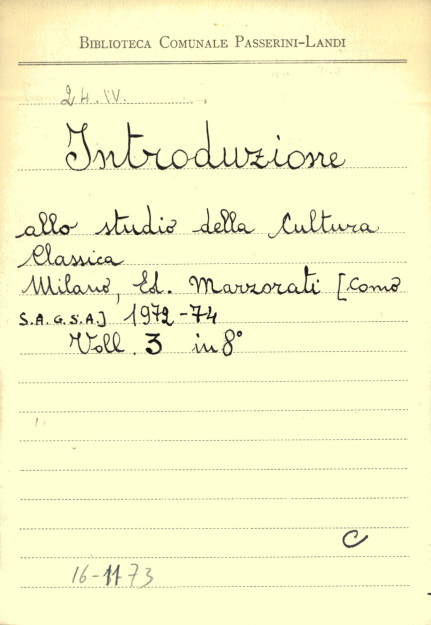 BIBLIOTECA COMUNALE PASSERINI-LANDI
24.IV.
Introduzione
allo studio della Cultura
Classica
Milano, Ed. Marzorati [Como
S.A.G.S.A.] 1972-74
Voll. 3 in 8°
C
16-11 73